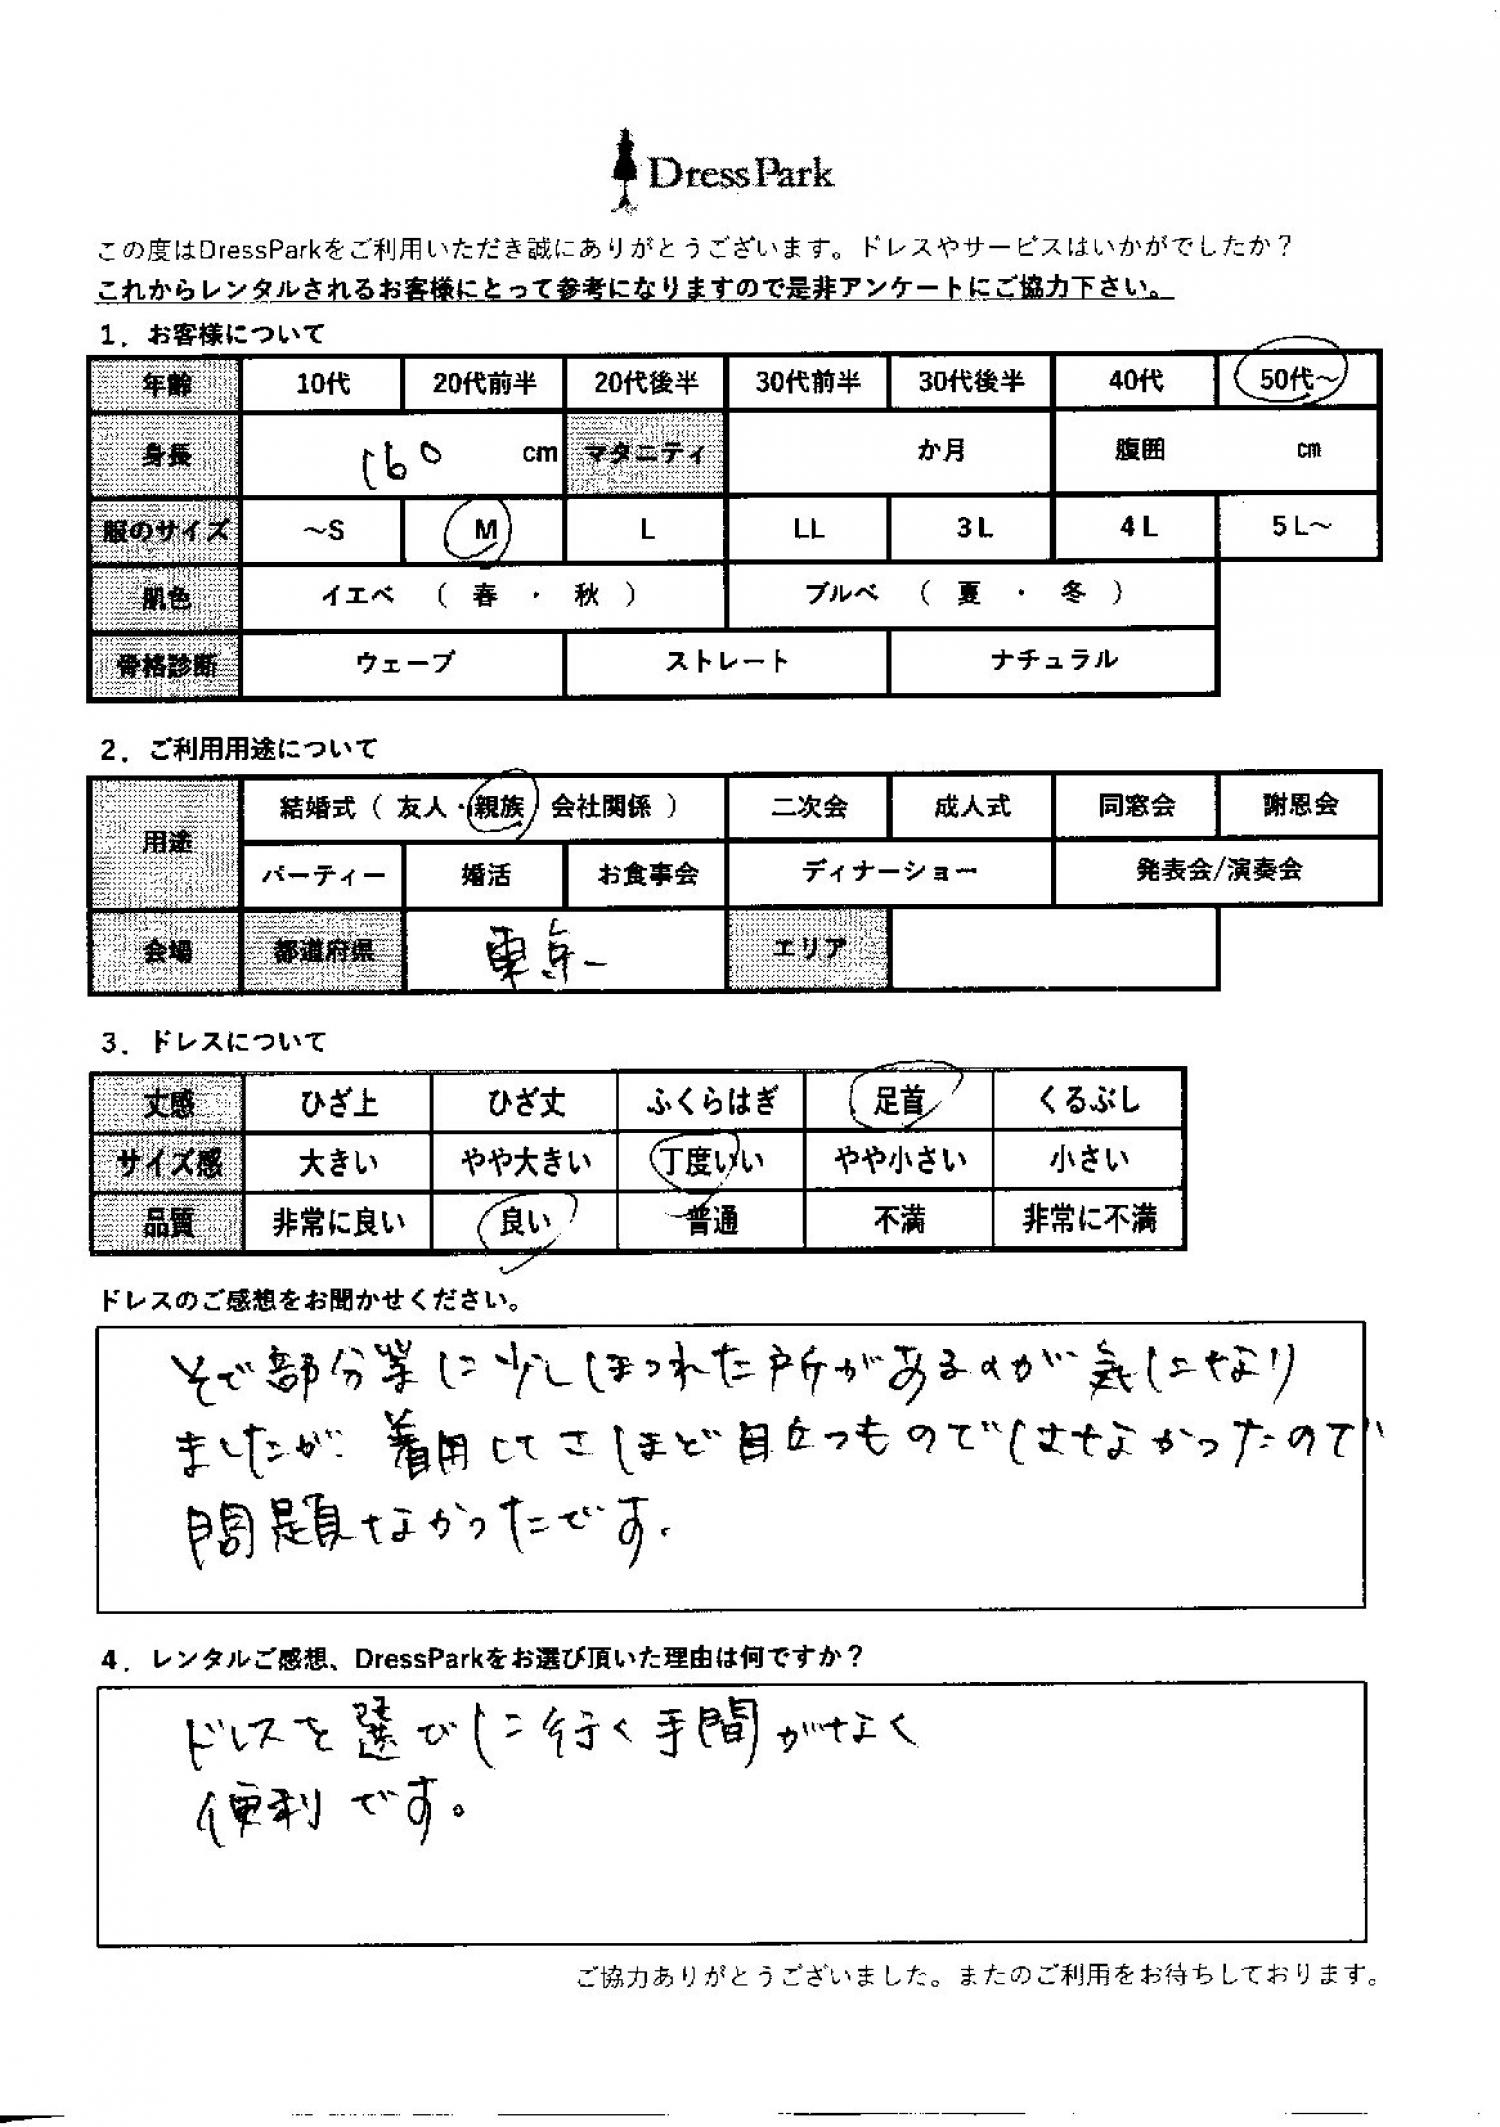 DressPark
この度はDressParkをご利用いただき誠にありがとうございます。ドレスやサービスはいかがでしたか？
これからレンタルされるお客様にとって参考になりますので是非アンケートにご協力下さい。
1．お客様について
年齢 10代 20代前半 20代後半 30代前半 30代後半 40代 50代～
身長 160 cm マタニティ か月 腹囲 cm
服のサイズ ～S M L LL 3L 4L 5L～
肌色 イエベ （ 春 ・ 秋 ） ブルベ （ 夏 ・ 冬 ）
骨格診断 ウェーブ ストレート ナチュラル
2．ご利用用途について
用途 結婚式（ 友人・親族 会社関係 ） 二次会 成人式 同窓会 謝恩会
パーティー 婚活 お食事会 ディナーショー 発表会/演奏会
会場 都道府県 東京 エリア
3．ドレスについて
丈感 ひざ上 ひざ丈 ふくらはぎ 足首 くるぶし
サイズ感 大きい やや大きい 丁度いい やや小さい 小さい
品質 非常に良い 良い 普通 不満 非常に不満
ドレスのご感想をお聞かせください。
そで部分に少しほつれた所があるのが気になり
ましたが、着用してさほど目立つものではなかったので
問題なかったです。
4．レンタルご感想、DressParkをお選び頂いた理由は何ですか？
ドレスを選びに行く手間がなく
便利です。
ご協力ありがとうございました。またのご利用をお待ちしております。